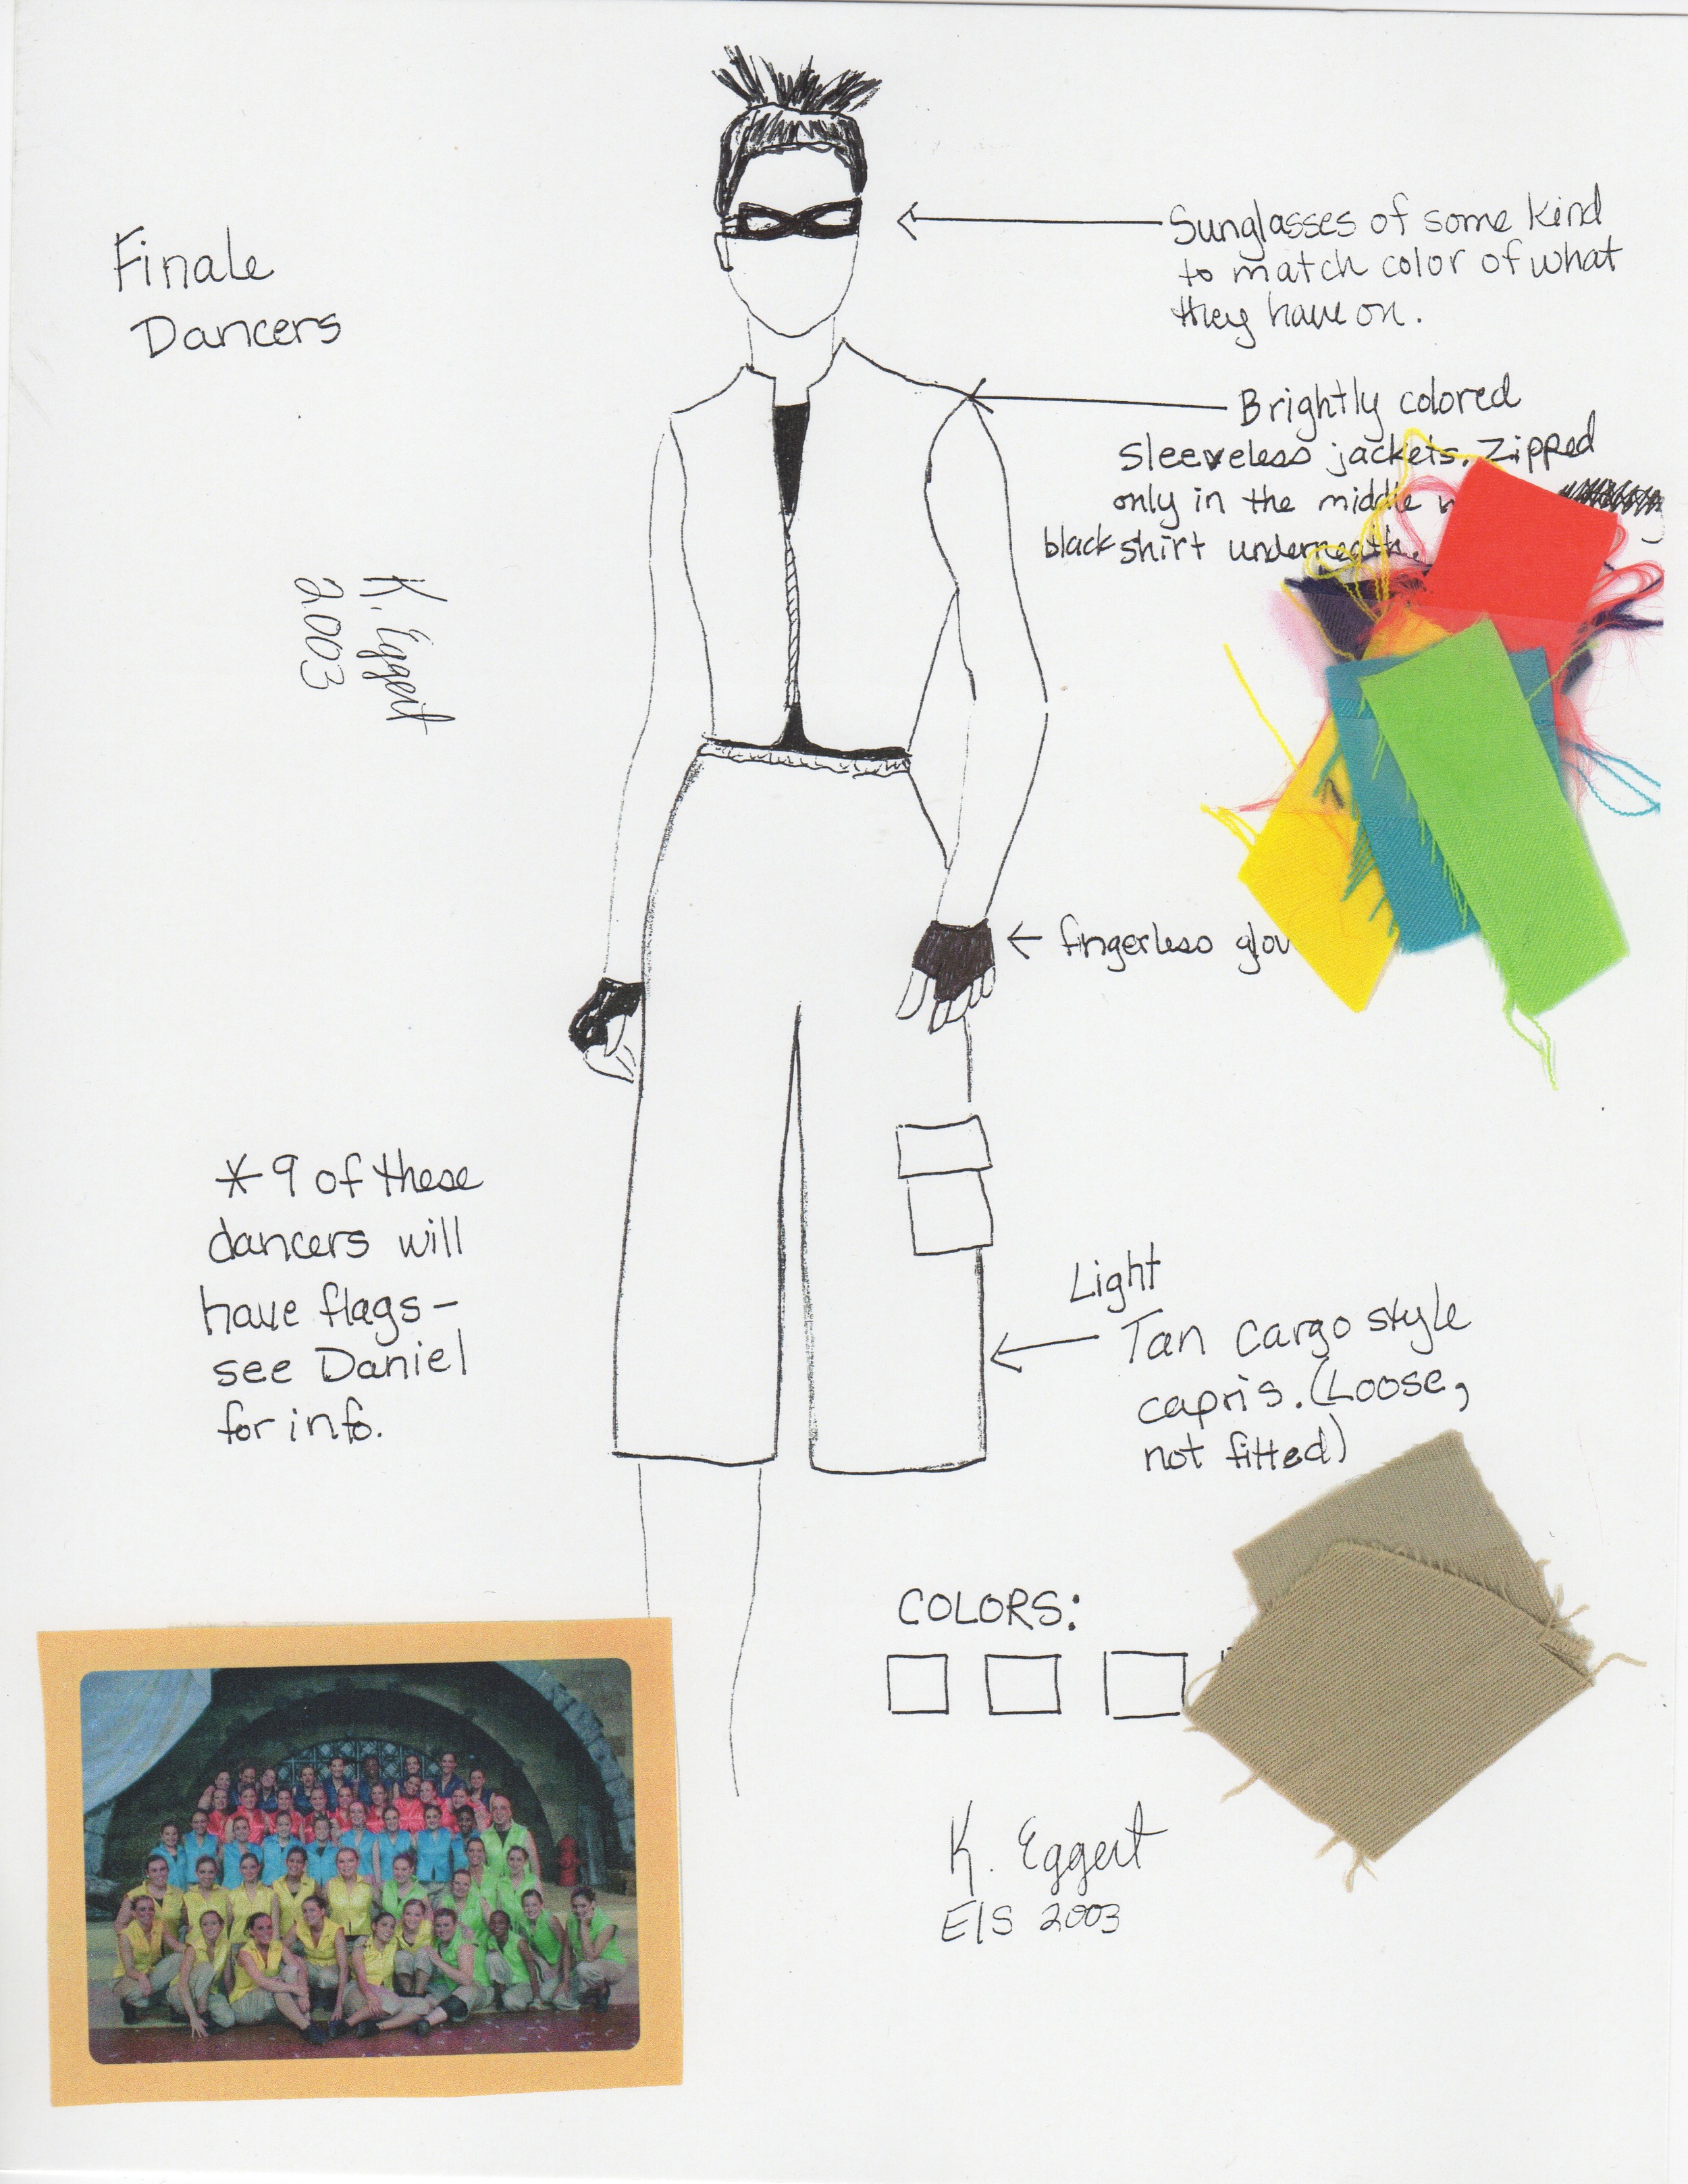 Finale
Dancers
K. Eggert
2003
Sunglasses of some kind
to match color of what
they have on.
Brightly colored
sleeveless jackets. Zipped
only in the middle
black shirt underneath.
fingerless glov
*9 of these
dancers will
have flags-
see Daniel
for info.
Light
Tan cargo style
capris. (Loose,
not fitted)
COLORS:
K. Eggert
EIS 2003